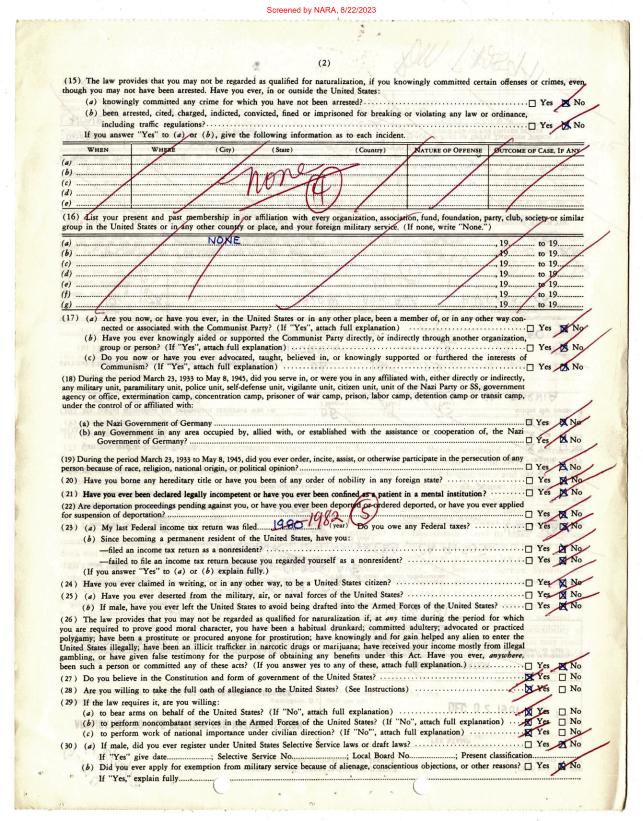 Screened by NARA, 8/22/2023
(2)
(15) The law provides that you may not be regarded as qualified for naturalization, if you knowingly committed certain offenses or crimes, even
though you may not have been arrested. Have you ever, in or outside the United States:
(a) knowingly committed any crime for which you have not been arrested? ☐ Yes ☒ No
(b) been arrested, cited, charged, indicted, convicted, fined or imprisoned for breaking or violating any law or ordinance,
including traffic regulations? ☐ Yes ☒ No
If you answer "Yes" to (a) or (b), give the following information as to each incident.
WHEN WHERE (City) (State) (Country) NATURE OF OFFENSE OUTCOME OF CASE, IF ANY
(a)
(b)
(c) none 4
(d)
(e)
(16) List your present and past membership in or affiliation with every organization, association, fund, foundation, party, club, society or similar
group in the United States or in any other country or place, and your foreign military service. (If none, write "None.")
(a) NONE , 19 to 19
(b) , 19 to 19
(c) , 19 to 19
(d) , 19 to 19
(e) , 19 to 19
(f) , 19 to 19
(g) , 19 to 19
(17) (a) Are you now, or have you ever, in the United States or in any other place, been a member of, or in any other way con-
nected or associated with the Communist Party? (If "Yes", attach full explanation) ☐ Yes ☒ No
(b) Have you ever knowingly aided or supported the Communist Party directly, or indirectly through another organization,
group or person? (If "Yes", attach full explanation) ☐ Yes ☒ No
(c) Do you now or have you ever advocated, taught, believed in, or knowingly supported or furthered the interests of
Communism? (If "Yes", attach full explanation) ☐ Yes ☒ No
(18) During the period March 23, 1933 to May 8, 1945, did you serve in, or were you in any affiliated with, either directly or indirectly,
any military unit, paramilitary unit, police unit, self-defense unit, vigilante unit, citizen unit, unit of the Nazi Party or SS, government
agency or office, extermination camp, concentration camp, prisoner of war camp, prison, labor camp, detention camp or transit camp,
under the control of or affiliated with:
(a) the Nazi Government of Germany ☐ Yes ☒ No
(b) any Government in any area occupied by, allied with, or established with the assistance or cooperation of, the Nazi
Government of Germany? ☐ Yes ☒ No
(19) During the period March 23, 1933 to May 8, 1945, did you ever order, incite, assist, or otherwise participate in the persecution of any
person because of race, religion, national origin, or political opinion? ☐ Yes ☒ No
(20) Have you borne any hereditary title or have you been of any order of nobility in any foreign state? ☐ Yes ☒ No
(21) Have you ever been declared legally incompetent or have you ever been confined as a patient in a mental institution? ☐ Yes ☒ No
(22) Are deportation proceedings pending against you, or have you ever been deported or ordered deported, or have you ever applied
for suspension of deportation? ☐ Yes ☒ No
(23) (a) My last Federal income tax return was filed 1980 1982 (year) 5 Do you owe any Federal taxes? ☐ Yes ☒ No
(b) Since becoming a permanent resident of the United States, have you:
—filed an income tax return as a nonresident? ☐ Yes ☒ No
—failed to file an income tax return because you regarded yourself as a nonresident? ☐ Yes ☒ No
(If you answer "Yes" to (a) or (b) explain fully.)
(24) Have you ever claimed in writing, or in any other way, to be a United States citizen? ☐ Yes ☒ No
(25) (a) Have you ever deserted from the military, air, or naval forces of the United States? ☐ Yes ☒ No
(b) If male, have you ever left the United States to avoid being drafted into the Armed Forces of the United States? ☐ Yes ☒ No
(26) The law provides that you may not be regarded as qualified for naturalization if, at any time during the period for which
you are required to prove good moral character, you have been a habitual drunkard; committed adultery; advocated or practiced
polygamy; have been a prostitute or procured anyone for prostitution; have knowingly and for gain helped any alien to enter the
United States illegally; have been an illicit trafficker in narcotic drugs or marijuana; have received your income mostly from illegal
gambling, or have given false testimony for the purpose of obtaining any benefits under this Act. Have you ever, anywhere,
been such a person or committed any of these acts? (If you answer yes to any of these, attach full explanation.) ☐ Yes ☒ No
(27) Do you believe in the Constitution and form of government of the United States? ☒ Yes ☐ No
(28) Are you willing to take the full oath of allegiance to the United States? (See Instructions) ☒ Yes ☐ No
(29) If the law requires it, are you willing:
(a) to bear arms on behalf of the United States? (If "No", attach full explanation) ☒ Yes ☐ No
(b) to perform noncombatant services in the Armed Forces of the United States? (If "No", attach full explanation) ☒ Yes ☐ No
(c) to perform work of national importance under civilian direction? (If "No", attach full explanation) ☒ Yes ☐ No
(30) (a) If male, did you ever register under United States Selective Service laws or draft laws? ☐ Yes ☒ No
If "Yes" give date ; Selective Service No. ; Local Board No. ; Present classification
(b) Did you ever apply for exemption from military service because of alienage, conscientious objections, or other reasons? ☐ Yes ☒ No
If "Yes," explain fully